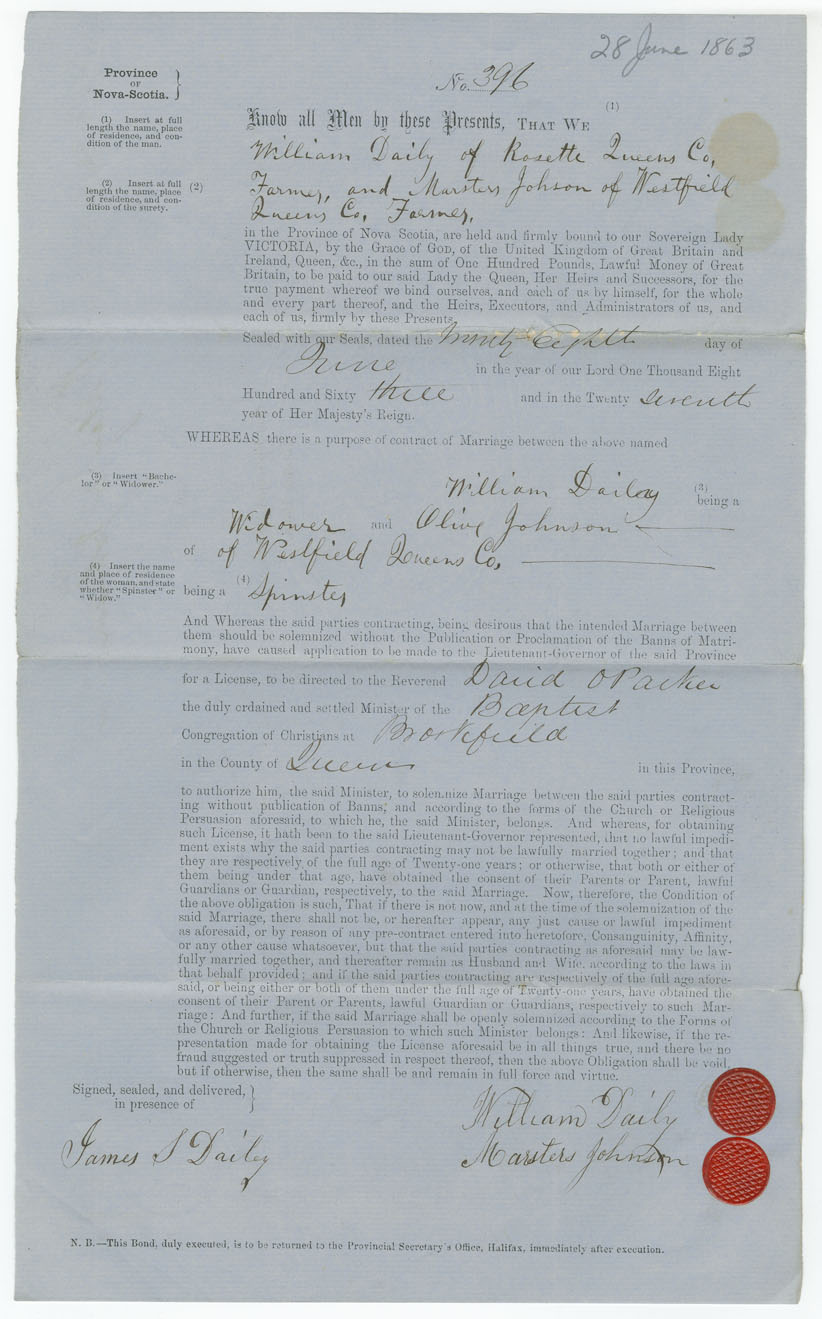 28 June 1863
Province
OF
Nova-Scotia.
No. 396
(1) Insert at full
length the name, place
of residence, and con-
dition of the man.
(1)
Know all Men by these Presents, THAT WE
William Daily of Rosette Queens Co,
(2) Insert at full
length the name, place
of residence, and con-
dition of the surety.
(2)
Farmer, and Marsters Johson of Westfield
Queens Co, Farmer,
in the Province of Nova Scotia, are held and firmly bound to our Sovereign Lady
VICTORIA, by the Grace of GOD, of the United Kingdom of Great Britain and
Ireland, Queen, &c., in the sum of One Hundred Pounds, Lawful Money of Great
Britain, to be paid to our said Lady the Queen, Her Heirs and Successors, for the
true payment whereof we bind ourselves, and each of us by himself, for the whole
and every part thereof, and the Heirs, Executors, and Administrators of us, and
each of us, firmly by these Presents.
Sealed with our Seals, dated the Eighth day of
June in the year of our Lord One Thousand Eight
Hundred and Sixty three and in the Twenty seventh
year of Her Majesty's Reign.
WHEREAS there is a purpose of contract of Marriage between the above named
(3) Insert "Bache-
lor" or "Widower."
William Dailey (3)
being a
Widower and Olive Johnson
of of Westfield Queens Co,
(4) Insert the name
and place of residence
of the woman, and state
whether "Spinster" or
"Widow."
being a (4) Spinster
And Whereas the said parties contracting, being desirous that the intended Marriage between
them should be solemnized without the Publication or Proclamation of the Banns of Matri-
mony, have caused application to be made to the Lieutenant-Governor of the said Province
for a License, to be directed to the Reverend David O Parker
the duly ordained and settled Minister of the Baptist
Congregation of Christians at Brookfield
in the County of Queens in this Province,
to authorize him, the said Minister, to solemnize Marriage between the said parties contract-
ing without publication of Banns, and according to the forms of the Church or Religious
Persuasion aforesaid, to which he, the said Minister, belongs. And whereas, for obtaining
such License, it hath been to the said Lieutenant-Governor represented, that no lawful impedi-
ment exists why the said parties contracting may not be lawfully married together; and that
they are respectively of the full age of Twenty-one years; or otherwise, that both or either of
them being under that age, have obtained the consent of their Parents or Parent, lawful
Guardians or Guardian, respectively, to the said Marriage. Now, therefore, the Condition of
the above obligation is such, That if there is not now, and at the time of the solemnization of the
said Marriage, there shall not be, or hereafter appear, any just cause or lawful impediment
as aforesaid, or by reason of any pre-contract entered into heretofore, Consanguinity, Affinity,
or any other cause whatsoever, but that the said parties contracting as aforesaid may be law-
fully married together, and thereafter remain as Husband and Wife, according to the laws in
that behalf provided; and if the said parties contracting are respectively of the full age afore-
said, or being either or both of them under the full age of Twenty-one years, have obtained the
consent of their Parent or Parents, lawful Guardian or Guardians, respectively to such Mar-
riage: And further, if the said Marriage shall be openly solemnized according to the Forms of
the Church or Religious Persuasion to which such Minister belongs: And likewise, if the re-
presentation made for obtaining the License aforesaid be in all things true, and if there be no
fraud suggested or truth suppressed in respect thereof, then the above Obligation shall be void,
but if otherwise, then the same shall be and remain in full force and virtue.
Signed, sealed, and delivered,
in presence of
William Daily
James S Dailey
Marsters Johnson
N. B.—This Bond, duly executed, is to be returned to the Provincial Secretary's Office, Halifax, immediately after execution.